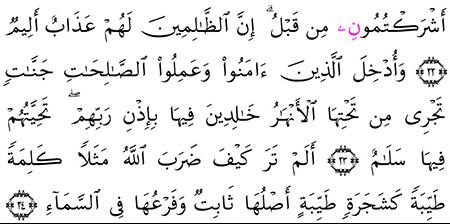 أَشْرَكْتُمُونِۦ مِن قَبْلُ ۗ إِنَّ ٱلظَّـٰلِمِينَ لَهُمْ عَذَابٌ أَلِيمٌ
﴿٢٢﴾ وَأُدْخِلَ ٱلَّذِينَ ءَامَنُوا۟ وَعَمِلُوا۟ ٱلصَّـٰلِحَـٰتِ جَنَّـٰتٍ
تَجْرِى مِن تَحْتِهَا ٱلْأَنْهَـٰرُ خَـٰلِدِينَ فِيهَا بِإِذْنِ رَبِّهِمْ ۖ تَحِيَّتُهُمْ
فِيهَا سَلَـٰمٌ ﴿٢٣﴾ أَلَمْ تَرَ كَيْفَ ضَرَبَ ٱللَّهُ مَثَلًا كَلِمَةً
طَيِّبَةً كَشَجَرَةٍ طَيِّبَةٍ أَصْلُهَا ثَابِتٌ وَفَرْعُهَا فِى ٱلسَّمَآءِ ﴿٢٤﴾